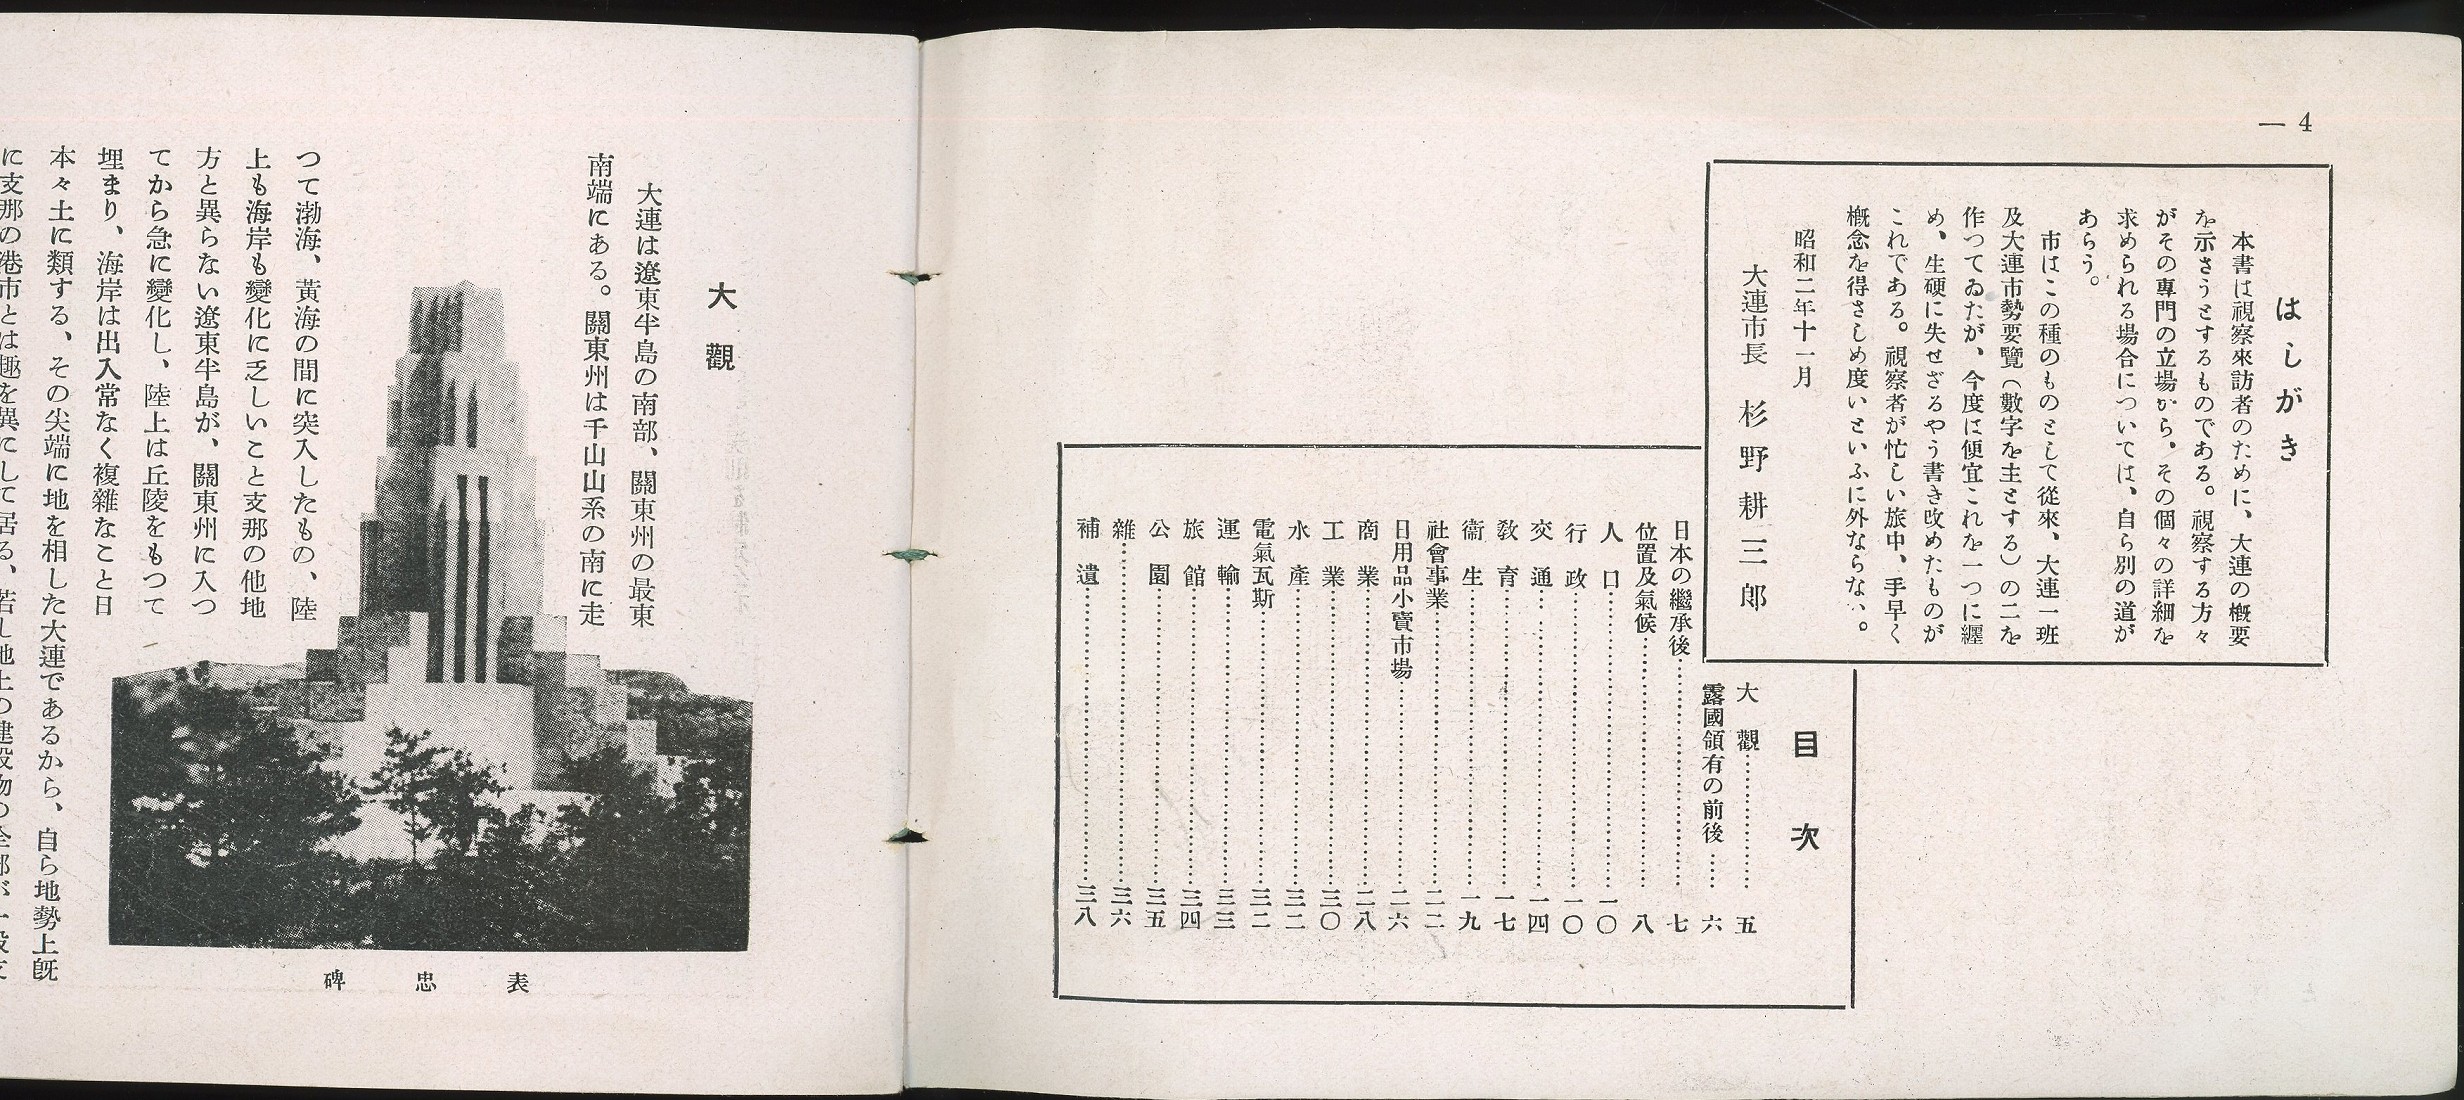 — 4
はしがき
本書は視察來訪者のために、大連の槪要
を示さうとするものである。視察する方々
がその專門の立場から、その個々の詳細を
求められる場合については、自ら別の道が
あらう。
市はこの種のものとして從來、大連一班
及大連市勢要覽（數字を主とする）の二を
作つてゐたが、今度は便宜これを一つに纒
め、生硬に失せざるやう書き改めたものが
これである。視察者が忙しい旅中、手早く
槪念を得さしめ度いといふに外ならない。
昭和二年十一月
大連市長 杉野耕三郎
目次
大觀……五
露國領有の前後……六
日本の繼承後……七
位置及氣候……八
人口……一〇
行政……一〇
交通……一四
敎育……一七
衞生……一九
社會事業……二二
日用品小賣市場……二六
商業……二八
工業……三〇
水產……三二
電氣瓦斯……三二
運輸……三三
旅館……三四
公園……三五
雜……三六
補遺……三八
大觀
大連は遼東半島の南部、關東州の最東
南端にある。關東州は千山山系の南に走
つて渤海、黃海の間に突入したもの、陸
上も海岸も變化に乏しいこと支那の他地
方と異らない遼東半島が、關東州に入つ
てから急に變化し、陸上は丘陵をもつて
埋まり、海岸は出入常なく複雜なこと日
本々土に類する、その尖端に地を相した大連であるから、自ら地勢上旣
に支那の港市とは趣を異にして居る、若し地上の建設物の全部が
表忠碑